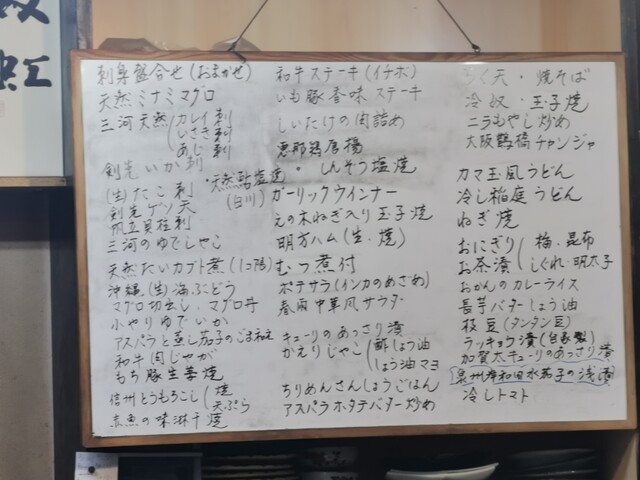 虹
刺身盛合せ(おまかせ)
天然ミナミマグロ
三河天然 カレイ刺
いさき刺
あじ刺
剣先いか刺
(生)たこ刺
剣先ゲソ天
帆立貝柱刺
三河のゆでしゃこ
天然たいカブト煮(1コ限)
沖縄(生)海ぶどう
マグロ切出し・マグロ丼
小やりゆでいか
アスパラと蒸し茄子のごま和え
和牛肉じゃが
もち豚生姜焼
信州とうもろこし 焼
天ぷら
赤魚の味淋干焼
和牛ステーキ(イチボ)
いも豚香味ステーキ
しいたけの肉詰め
恵那鶏唐揚
・天然鮎塩焼・しんそう塩焼
(白川)ガーリックウインナー
えの木ねぎ入り玉子焼
明方ハム(生・焼)
むつ煮付
ポテサラ(インカのめざめ)
春雨中華風サラダ
キューリのあっさり漬
かえりじゃこ 酢しょう油
しょう油マヨ
ちりめんさんしょうごはん
アスパラホタテバター炒め
天・焼そば
冷奴・玉子焼
ニラもやし炒め
大阪鶴橋チャンジャ
カマ玉風うどん
冷し稲庭うどん
ねぎ焼
おにぎり 梅・昆布
お茶漬 しぐれ・明太子
おかんのカレーライス
長芋バターしょう油
枝豆(タンタン豆)
ラッキョウ漬(自家製)
加賀太キューリのあっさり漬
泉州岸和田水茄子の浅漬
冷しトマト